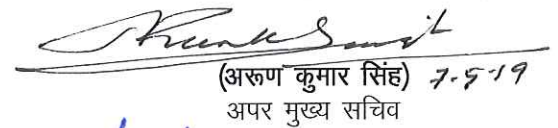 (अरूण कुमार सिंह) 7-5-19
अपर मुख्य सचिव